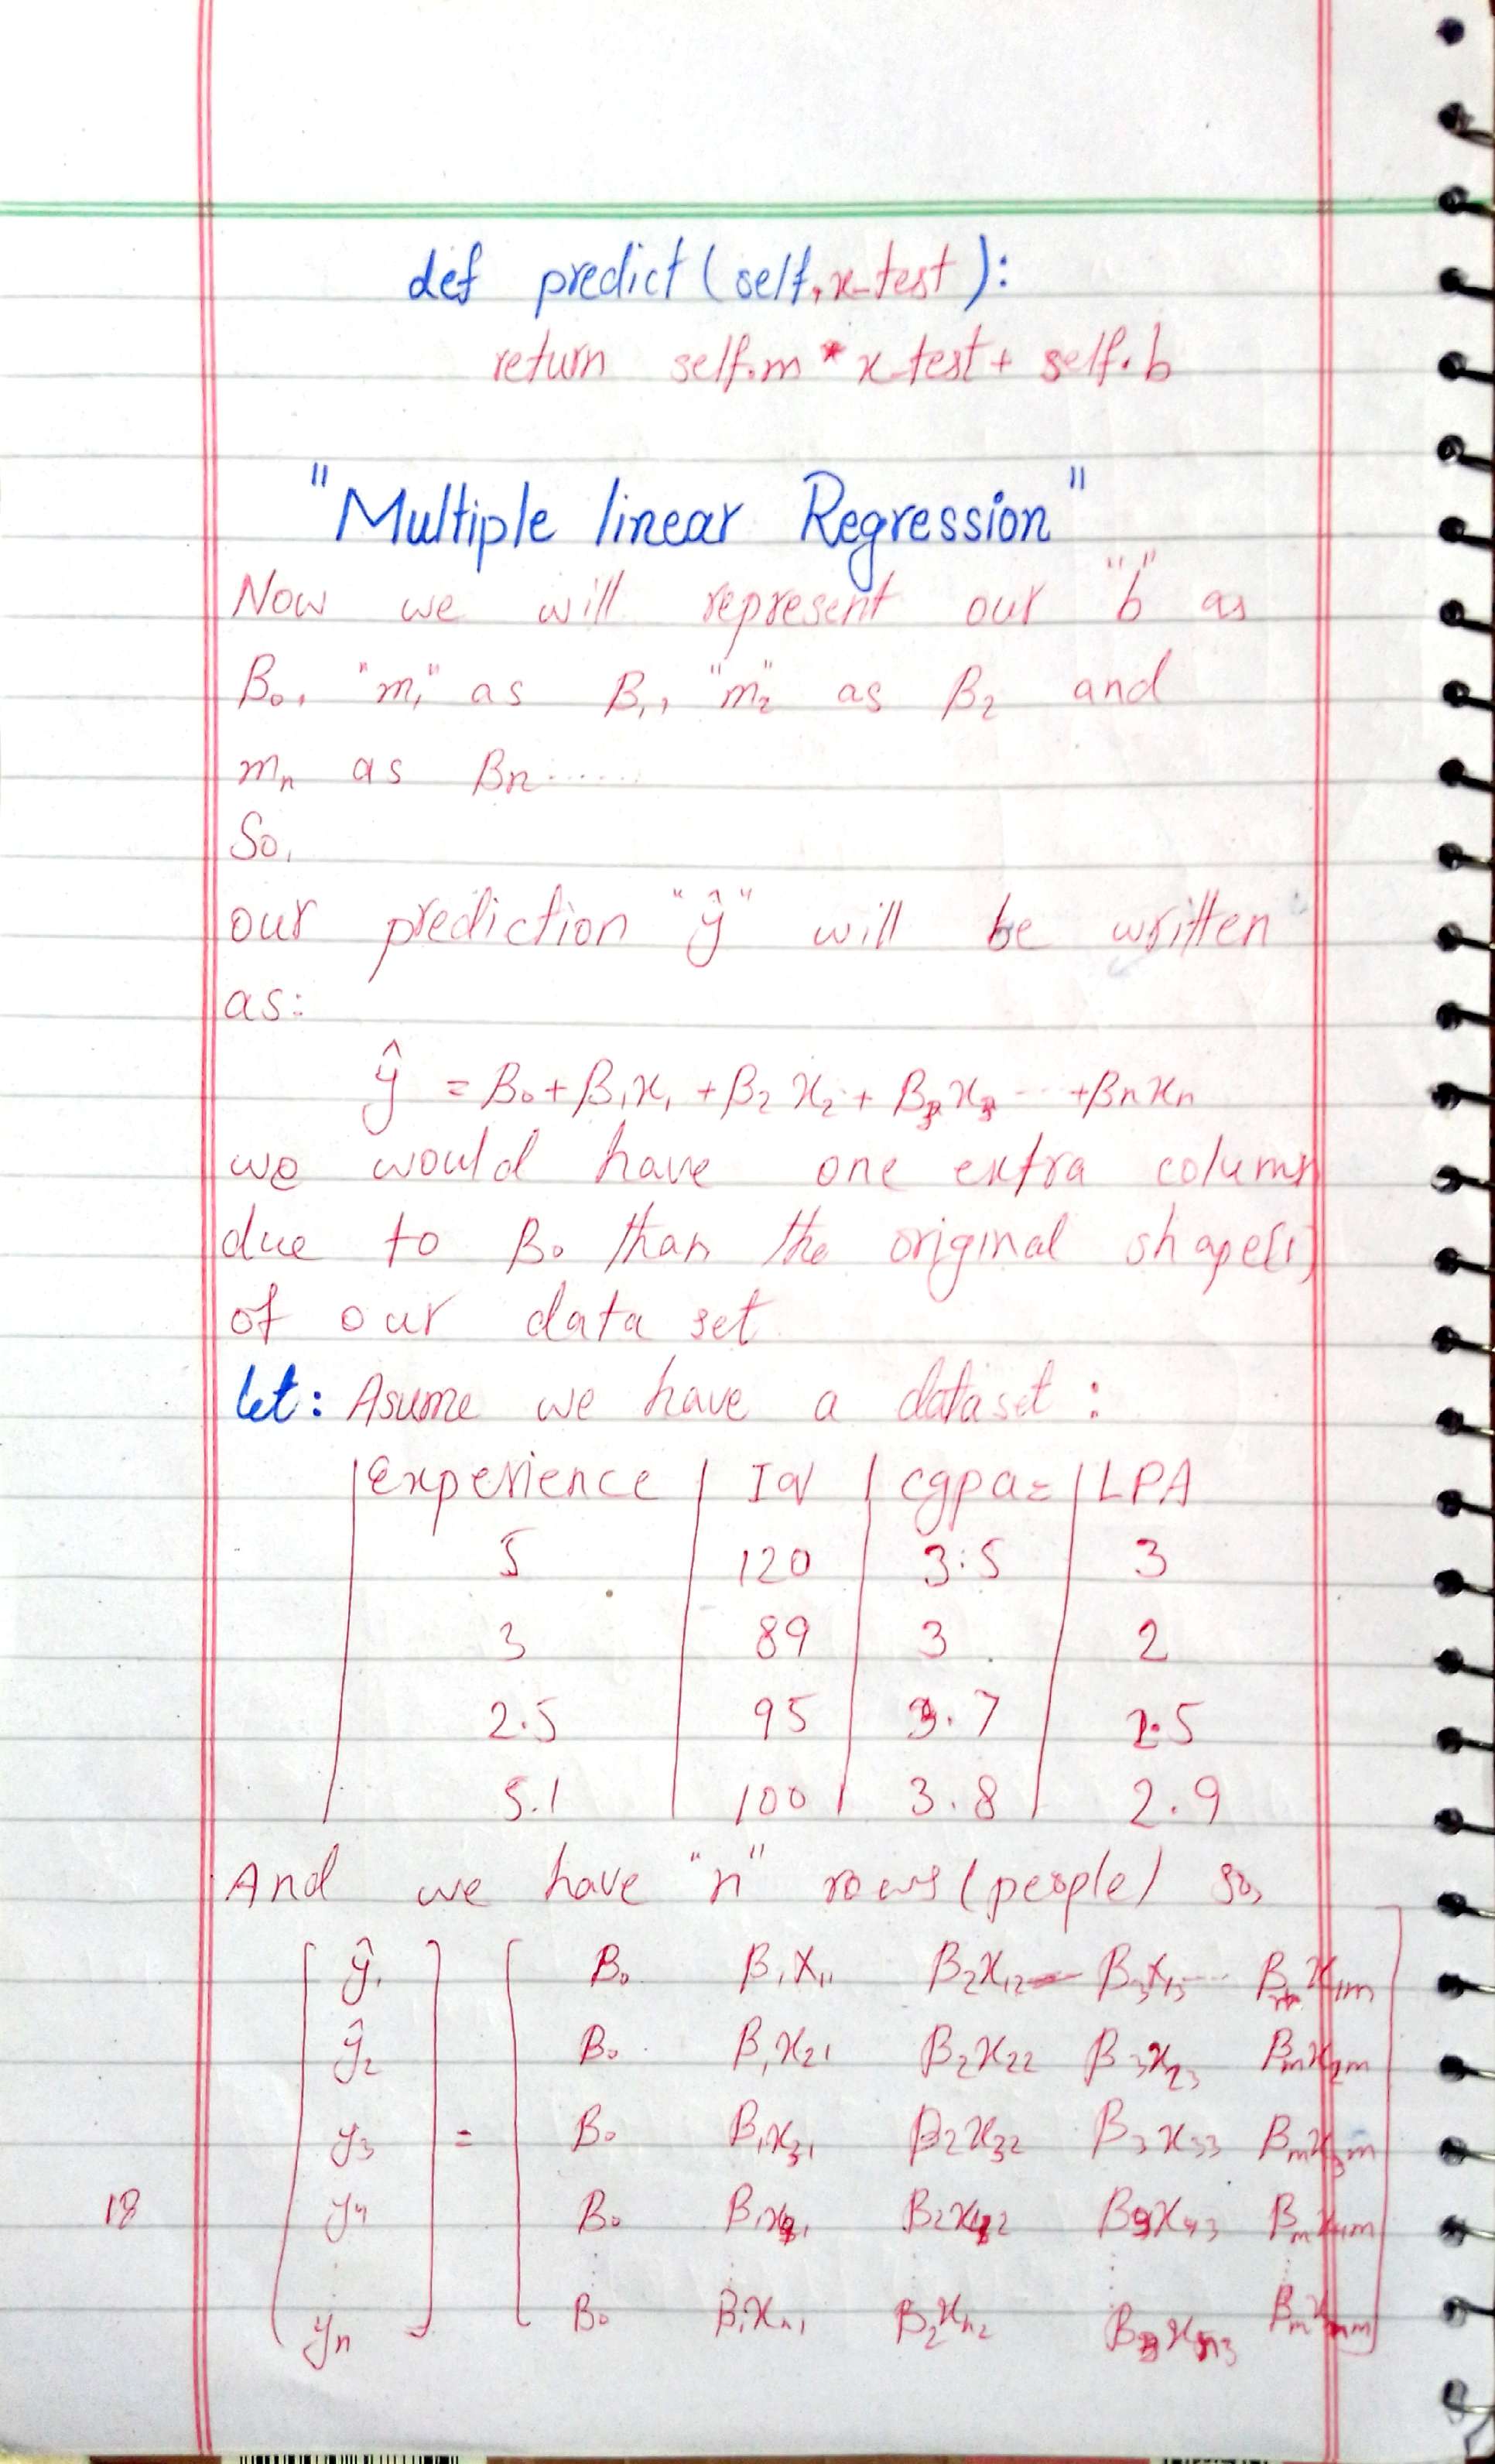 def predict(self, x_test):
return self.m * x_test + self.b
"Multiple linear Regression"
Now we will represent our "b" as
B₀, "m₁" as β₁, "m₂" as β₂ and
mₙ as βn ......
So,
our prediction "ŷ" will be written
as:
ŷ = β₀ + β₁x₁ + β₂x₂ + β₃x₃ ... + βnxn
we would have one extra column
due to β₀ than the original shape(1)
of our data set
let: Asume we have a dataset :
| Experience | IQ | cgpa= | LPA
5 | 120 | 3.5 | 3
3 | 89 | 3 | 2
2.5 | 95 | 3.7 | 2.5
5.1 | 100 | 3.8 | 2.9
And we have "n" rows (people) so,
ŷ₁ β₀ β₁x₁₁ β₂x₁₂ β₃x₁₃ ... βₘx₁ₘ
ŷ₂ β₀ β₁x₂₁ β₂x₂₂ β₃x₂₃ βₘx₂ₘ
y₃ = β₀ β₁x₃₁ β₂x₃₂ β₃x₃₃ βₘx₃ₘ
18 y₄ β₀ β₁x₄₁ β₂x₄₂ β₃x₄₃ βₘx₄ₘ
yn β₀ β₁xₙ₁ β₂xₙ₂ β₃xₙ₃ βₘxₙₘ